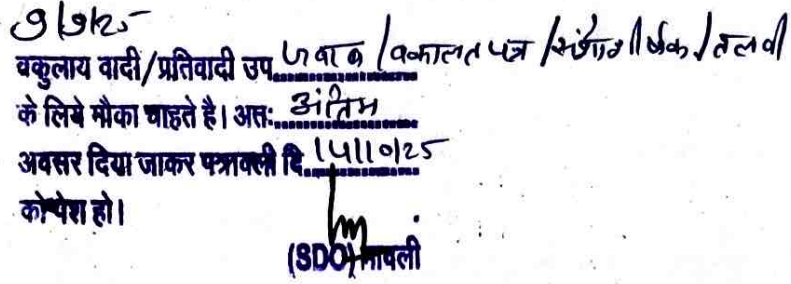 9/9/25
वकुलाय वादी/प्रतिवादी उप. जवाब /वकालत पत्र / /तलवी
के लिये मौका चाहते है। अतः अंतिम
अवसर दिया जाकर पत्रावली दि. 14/10/25
को पेश हो।
(SDO) मावली